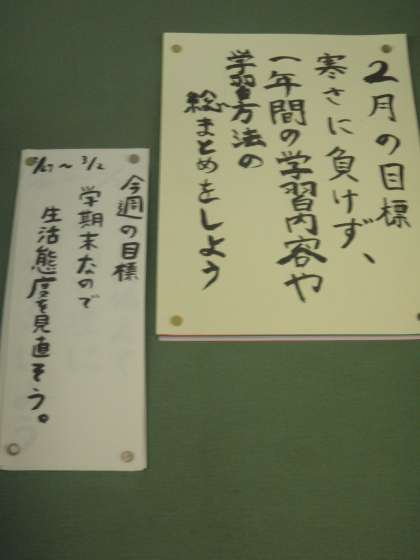 2月の目標
寒さに負けず、
一年間の学習内容や
学習方法の
総まとめをしよう
2/27〜3/2
今週の目標
学期末なので
生活態度を見直そう。